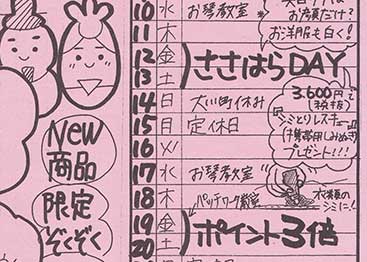 10 水 お琴教室
お洗濯だけ?
お洋服も白く!
11 木
12 金
13 土
ささはらDAY
14 日 大川町休み
15 月 定休日
16 火
17 水 お琴教室
18 木 パッチワーク教室
19 金
20 土
ポイント3倍
3,600円で
(税抜)
シミとりレスキュー
(携帯用しみぬき)
プレゼント!!!
衣類の
シミに!
New
商品
限定
ぞくぞく